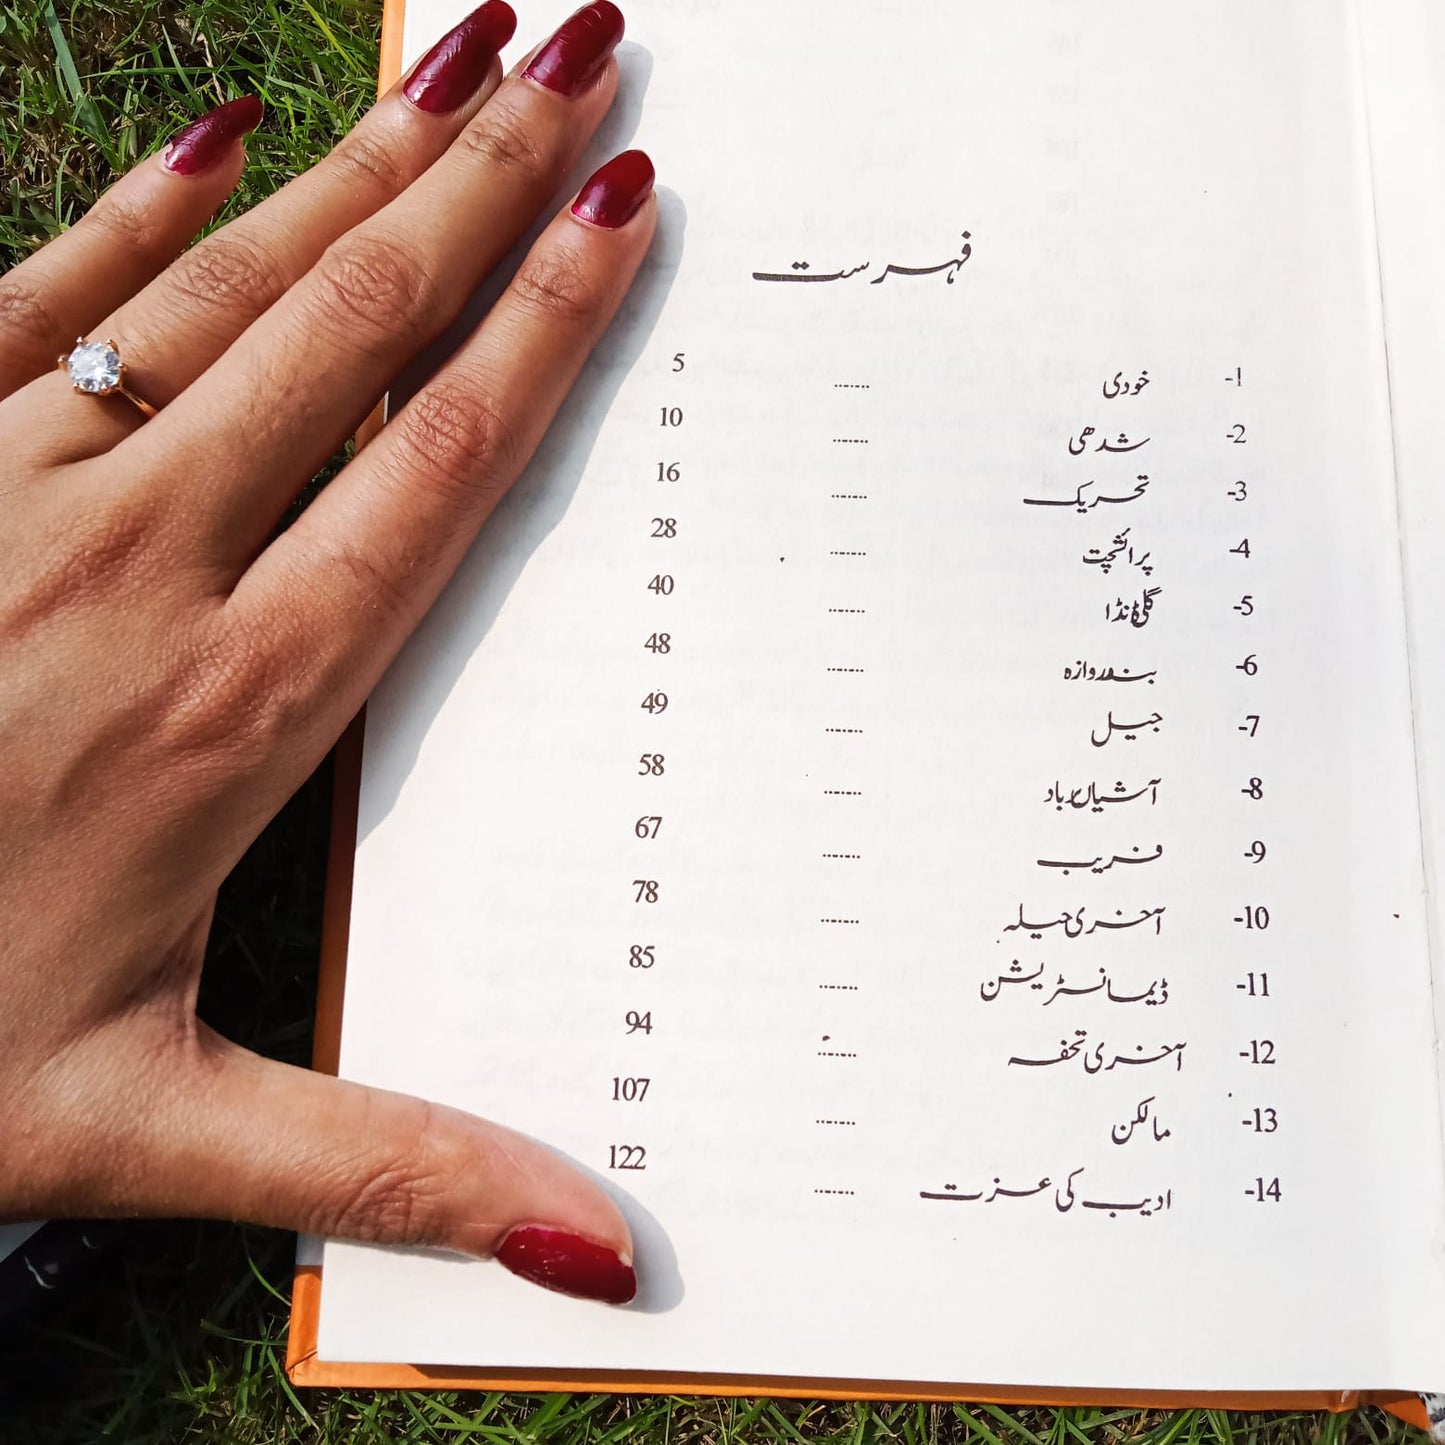 فہرست
-1 خودی ....... 5
-2 شدھی ....... 10
-3 تحریک ....... 16
-4 پرائشچت ....... 28
-5 گلی ڈنڈا ....... 40
-6 بند دروازہ ....... 48
-7 جیل ....... 49
-8 آشیاں برباد ....... 58
-9 فریب ....... 67
-10 آخری حیلہ ....... 78
-11 ڈیمانسٹریشن ....... 85
-12 آخری تحفہ ....... 94
-13 مالکن ....... 107
-14 ادیب کی عزت ....... 122